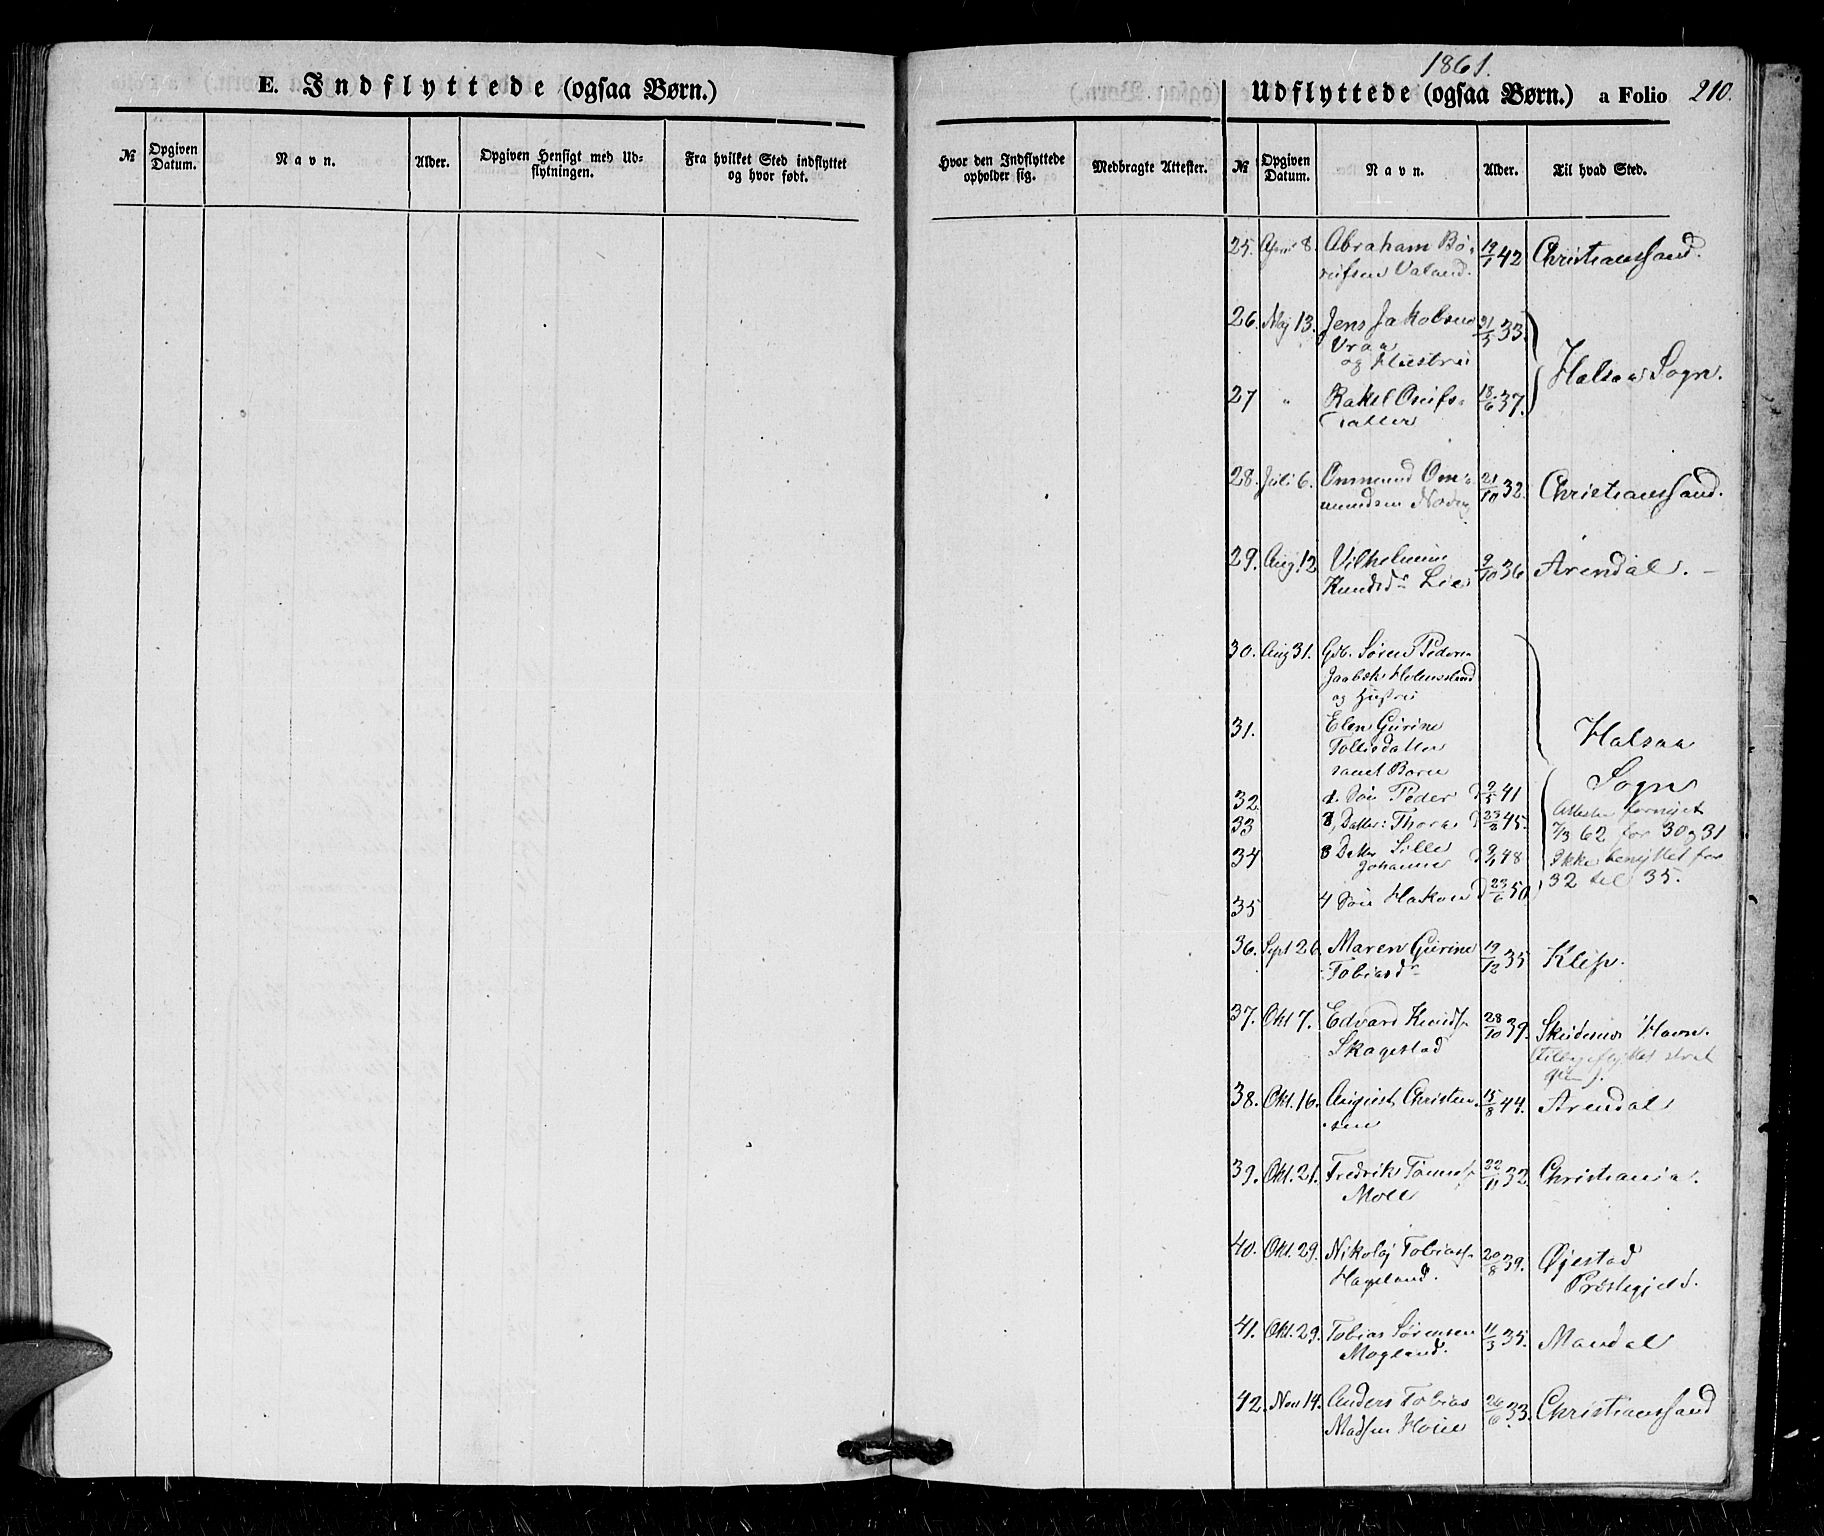 E. Indflyttede (ogsaa Børn.)
№
Opgiven Datum.
Navn.
Alder.
Opgiven Hensigt med Ud=
flytningen.
Fra hvilket Sted indflyttet
og hvor født.
1861.
Udflyttede (ogsaa Børn.) a Folio 210.
Hvor den Indflyttede
opholder sig.
Medbragte Attester.
№
Opgiven Datum.
Navn.
Alder.
Til hvad Sted.
25. April 8. Abraham Bø- 19/1 42 Christianssand.
Valand.
26. Maj 13. Jens Jakobsen 31/5 33.
Vraa
og Hustru
Halsaa Sogn.
27 " Rakel Osufs- 18/6 37.
datter
28. Juli 6. Ommund Om- 21/10 32. Christianssand.
mundsen
29. Aug. 12 Vilhelmine 9/10 36 Arendal.
Knudsd. Lie
30. Aug 31. Gdb. Søren Peders.
Jaabæk Holmesland
og Hustru
31. Elen Gurine
Tollisdatter
samt Børn
Halsaa
Sogn
32 1. Søn Peder 9/5 41
33 2, Datter: Thora 23/2 45.
34 3 Datter Sille
Johanne 9/4 48
35 4 Søn Hakon 23/6 50
Attester fornyet
7/3 62 for 30 og 31
Ikke benyttet for
32 til 35.
36. Sept 26. Maren Gurine 19/12 35 Klep.
Tobiasd.
37. Okt 7. Edvard Knuds. 28/10 39. Skudenes Havn.
Skagestad
38. Okt. 16. August Christen- 15/8 44. Arendal
sen
39. Okt. 21. Fredrik Tønness. 22/11 32. Christiania.
Moll
40. Okt. 29. Nikolaj Tobiass. 20/8 39. Øjestad
Hageland. Præstegjeld.
41. Okt. 29. Tobias Sørensen 11/3 35. Mandal
Mogland.
42. Nov 14. Anders Tobias 26/6 33. Christianssand
Madsen Hoie